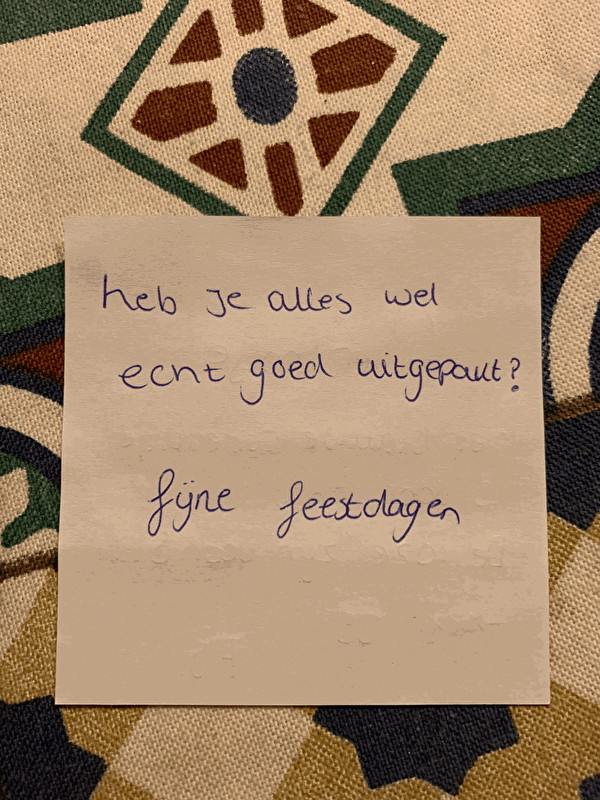 heb je alles wel
echt goed uitgepakt?
fijne feestdagen